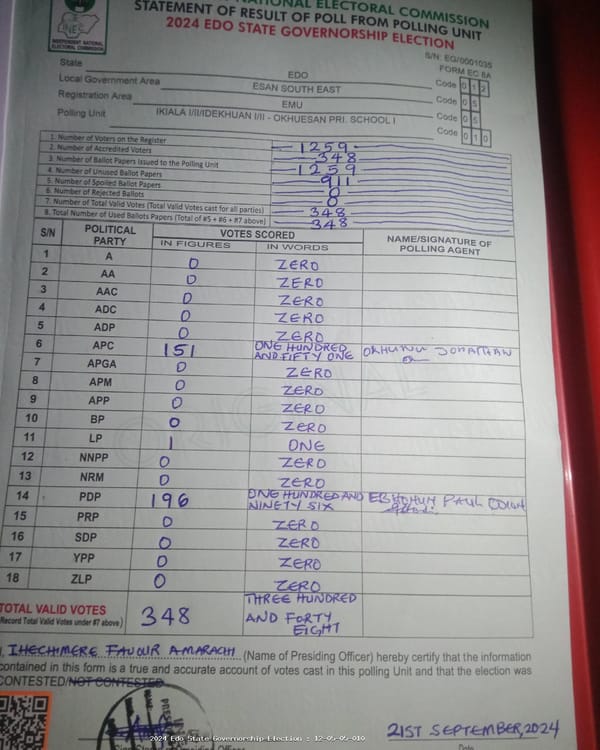 NATIONAL ELECTORAL COMMISSION
STATEMENT OF RESULT OF POLL FROM POLLING UNIT
2024 EDO STATE GOVERNORSHIP ELECTION
INEC
INDEPENDENT NATIONAL
ELECTORAL COMMISSION
S/N: EG/0001035
FORM EC 8A
State EDO Code 0 1 2
Local Government Area ESAN SOUTH EAST Code 0 5
Registration Area EMU Code 0 5
Polling Unit IKIALA I/II/IDEKHUAN I/II - OKHUESAN PRI. SCHOOL I Code 0 1 0
1. Number of Voters on the Register 1259
2. Number of Accredited Voters 348
3. Number of Ballot Papers Issued to the Polling Unit 1259
4. Number of Unused Ballot Papers 911
5. Number of Spoiled Ballot Papers 0
6. Number of Rejected Ballots 0
7. Number of Total Valid Votes (Total Valid Votes cast for all parties) 348
8. Total Number of Used Ballots Papers (Total of #5 + #6 + #7 above) 348
S/N POLITICAL PARTY VOTES SCORED NAME/SIGNATURE OF POLLING AGENT
IN FIGURES IN WORDS
1 A 0 ZERO
2 AA 0 ZERO
3 AAC 0 ZERO
4 ADC 0 ZERO
5 ADP 0 ZERO
6 APC 151 ONE HUNDRED AND FIFTY ONE JONATHAN
7 APGA 0 ZERO
8 APM 0 ZERO
9 APP 0 ZERO
10 BP 0 ZERO
11 LP 1 ONE
12 NNPP 0 ZERO
13 NRM 0 ZERO
14 PDP 196 ONE HUNDRED AND NINETY SIX PAUL
15 PRP 0 ZERO
16 SDP 0 ZERO
17 YPP 0 ZERO
18 ZLP 0 ZERO
ORIGINAL
TOTAL VALID VOTES
(Record Total Valid Votes under #7 above) 348 THREE HUNDRED AND FORTY EIGHT
I, IHECHIMERE FAVOUR AMARACHI (Name of Presiding Officer) hereby certify that the information
contained in this form is a true and accurate account of votes cast in this polling Unit and that the election was
CONTESTED/NOT CONTESTED
21ST SEPTEMBER, 2024
2024 Edo State Governorship Election : 12-05-05-010
Date